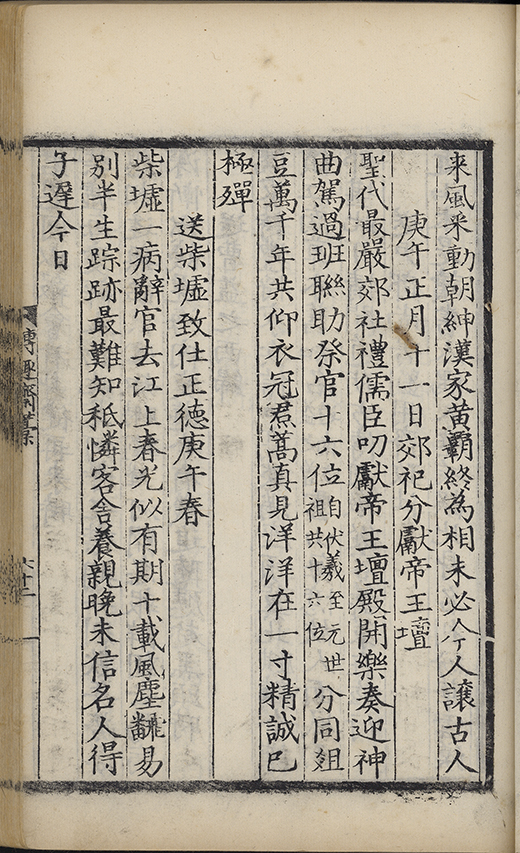 来風采動朝紳漢家黄霸終為相未必今人譲古人
庚午正月十一日郊祀分獻帝王壇
聖代最嚴郊社禮儒臣叨獻帝王壇殿開樂奏迎神
曲駕過班聯助祭官十六位自伏羲至元世祖共十六位分同爼
豆萬千年共仰衣冠焄蒿真見洋洋在一寸精誠已
極殫
送柴墟致仕正德庚午春
柴墟一病辭官去江上春光似有期十載風塵飜易
別半生踪跡最難知秪憐客舎養親晩未信名人得
子遲今日
博趣齋藁